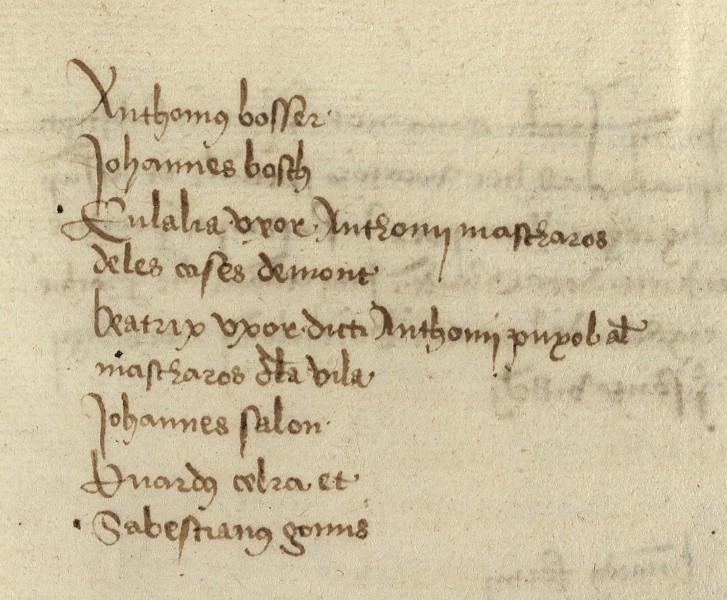 Anthonꝰ bosser
Johannes bosch
Eulalia uxor Anthonij mascharos
deles cases demont
beatrix uxor dicti Anthonij puxol al̅
mascharos dla vila
Johannes salon
Duardꝰ celra et
Sabestianꝰ gomis